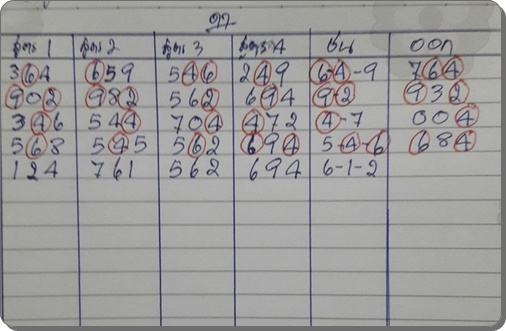 ดูตร 1 ดูตร 2 ดูตร 3 ดูตร 4 ชน ออก
364 659 546 249 64-9 764
902 982 562 694 9-2 932
346 544 704 472 4-7 004
568 545 562 694 5-4-6 684
124 761 562 694 6-1-2